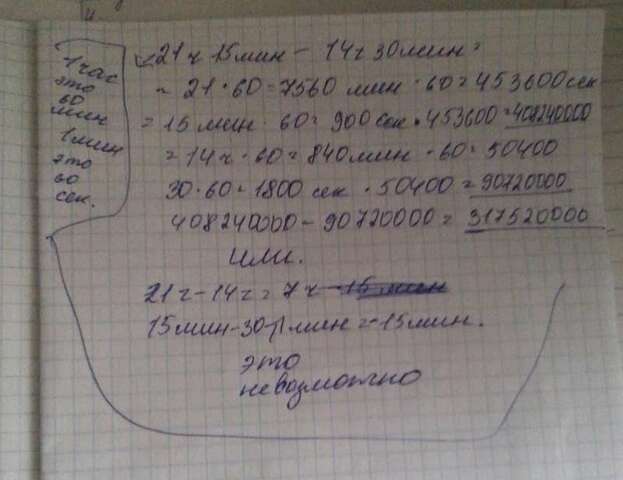 1 час
это
60
мин
1 мин
это
60
сек.
21 ч 15 мин - 14 ч 30 мин =
= 21 · 60 = 7560 мин · 60 = 453600 сек
= 15 мин · 60 = 900 сек · 453600 = 408240000
= 14 ч · 60 = 840 мин · 60 = 50400
30 · 60 = 1800 сек · 50400 = 90720000
408240000 - 90720000 = 317520000
или.
21 ч - 14 ч = 7 ч
15 мин - 30 мин = -15 мин.
это
невозможно